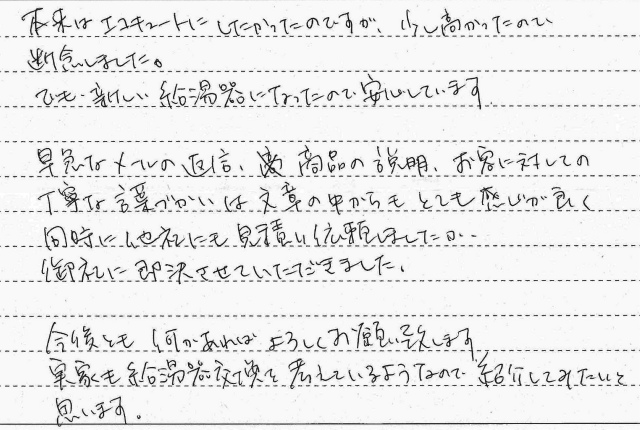 本来は エコキュートに したかったのですが、少し高かったので
断念しました。
でも、新しい 給湯器になったので 安心しています
早急な メールの 返信、商品の 説明、お客に対しての
丁寧な 言葉づかいは 文章の中からも とても 感じが良く
同時に 他社にも 見積り依頼しましたが‥
御社に 即決させていただきました。
今後とも 何かあれば よろしくお願い致します
実家も 給湯器交換を 考えているようなので 紹介してみたいと
思います。